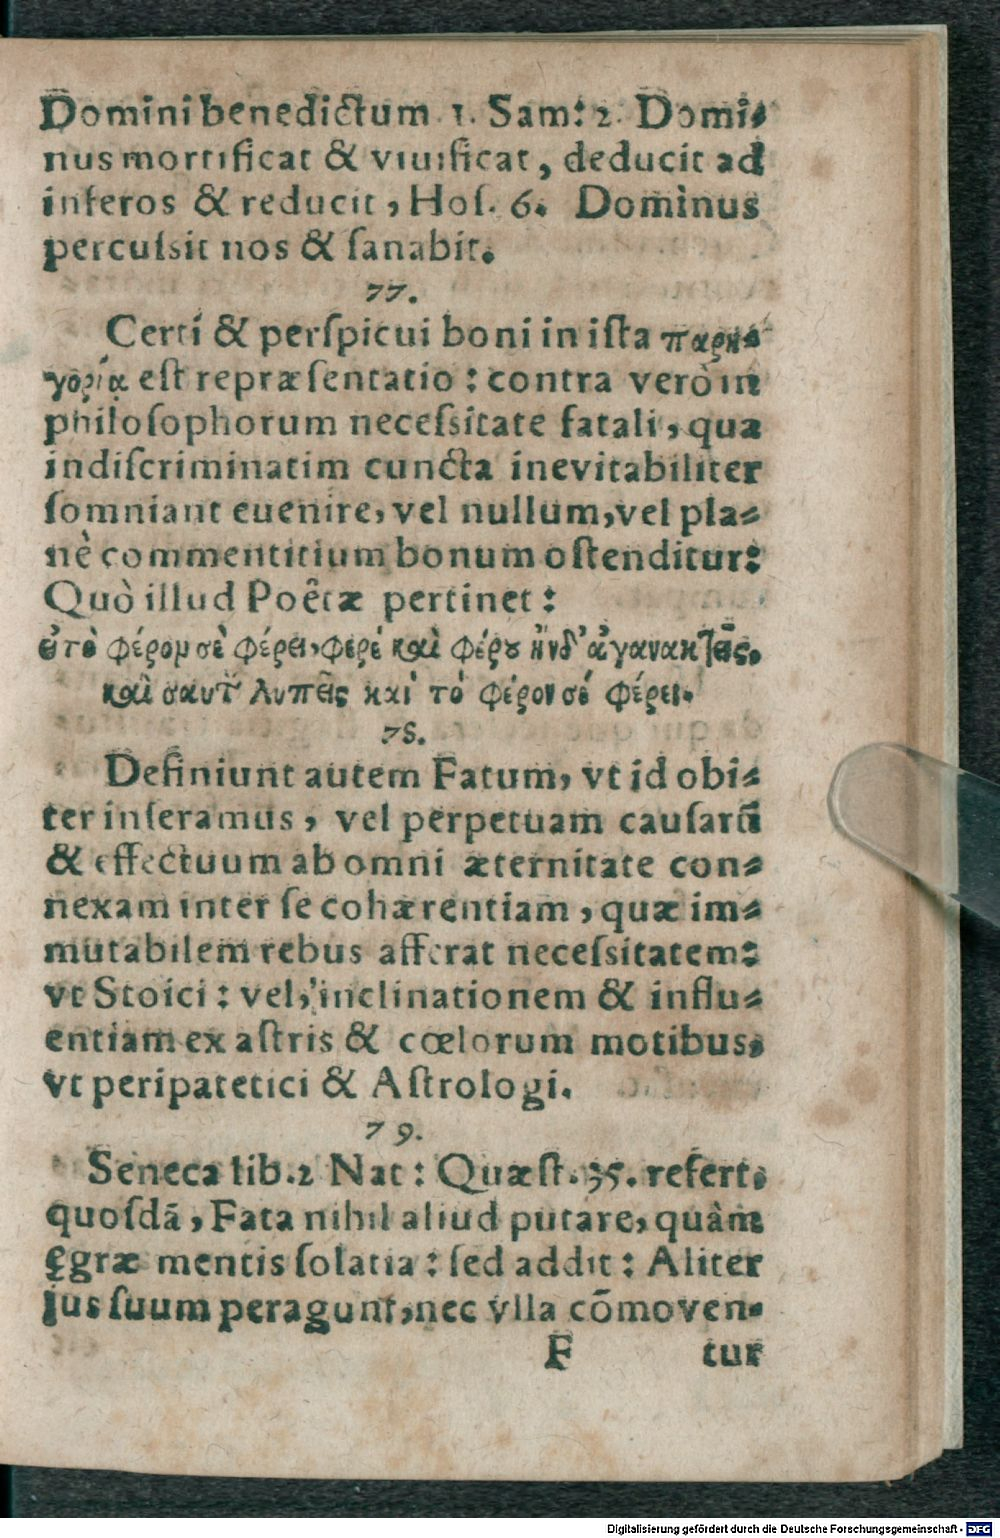 Domini benedictum 1. Sam: 2. Domi-
nus mortificat & viuificat, deducit ad
inferos & reducit, Hoſ. 6. Dominus
percuſsit nos & ſanabit.
77.
Certi & perſpicui boni in iſta παρη-
γορίᾳ eſt repræſentatio: contra verò in
philoſophorum neceſsitate fatali, qua
indiſcriminatim cuncta inevitabiliter
ſomniant euenire, vel nullum, vel pla-
nè commentitium bonum oſtenditur:
Quò illud Poêtæ pertinet:
φέρει, φέρε καὶ φέρου
καὶ λυπεῖς καὶ τὸ φέρον σέ φέρει.
78.
Definiunt autem Fatum, vt id obi-
ter inſeramus, vel perpetuam cauſarū
& effectuum ab omni æternitate con-
nexam inter ſe cohærentiam, quæ im-
mutabilem rebus afferat neceſsitatem:
vt Stoici: vel, inclinationem & influ-
entiam ex aſtris & cœlorum motibus,
vt peripatetici & Aſtrologi.
79.
Seneca lib. 2 Nat: Quæſt. 35. refert,
quoſdā, Fata nihil aliud putare, quàm
ęgræ mentis ſolatia: ſed addit: Aliter
jus ſuum peragunt, nec vlla cōmoven-
F tur
Digitalisierung gefördert durch die Deutsche Forschungsgemeinschaft - DFG